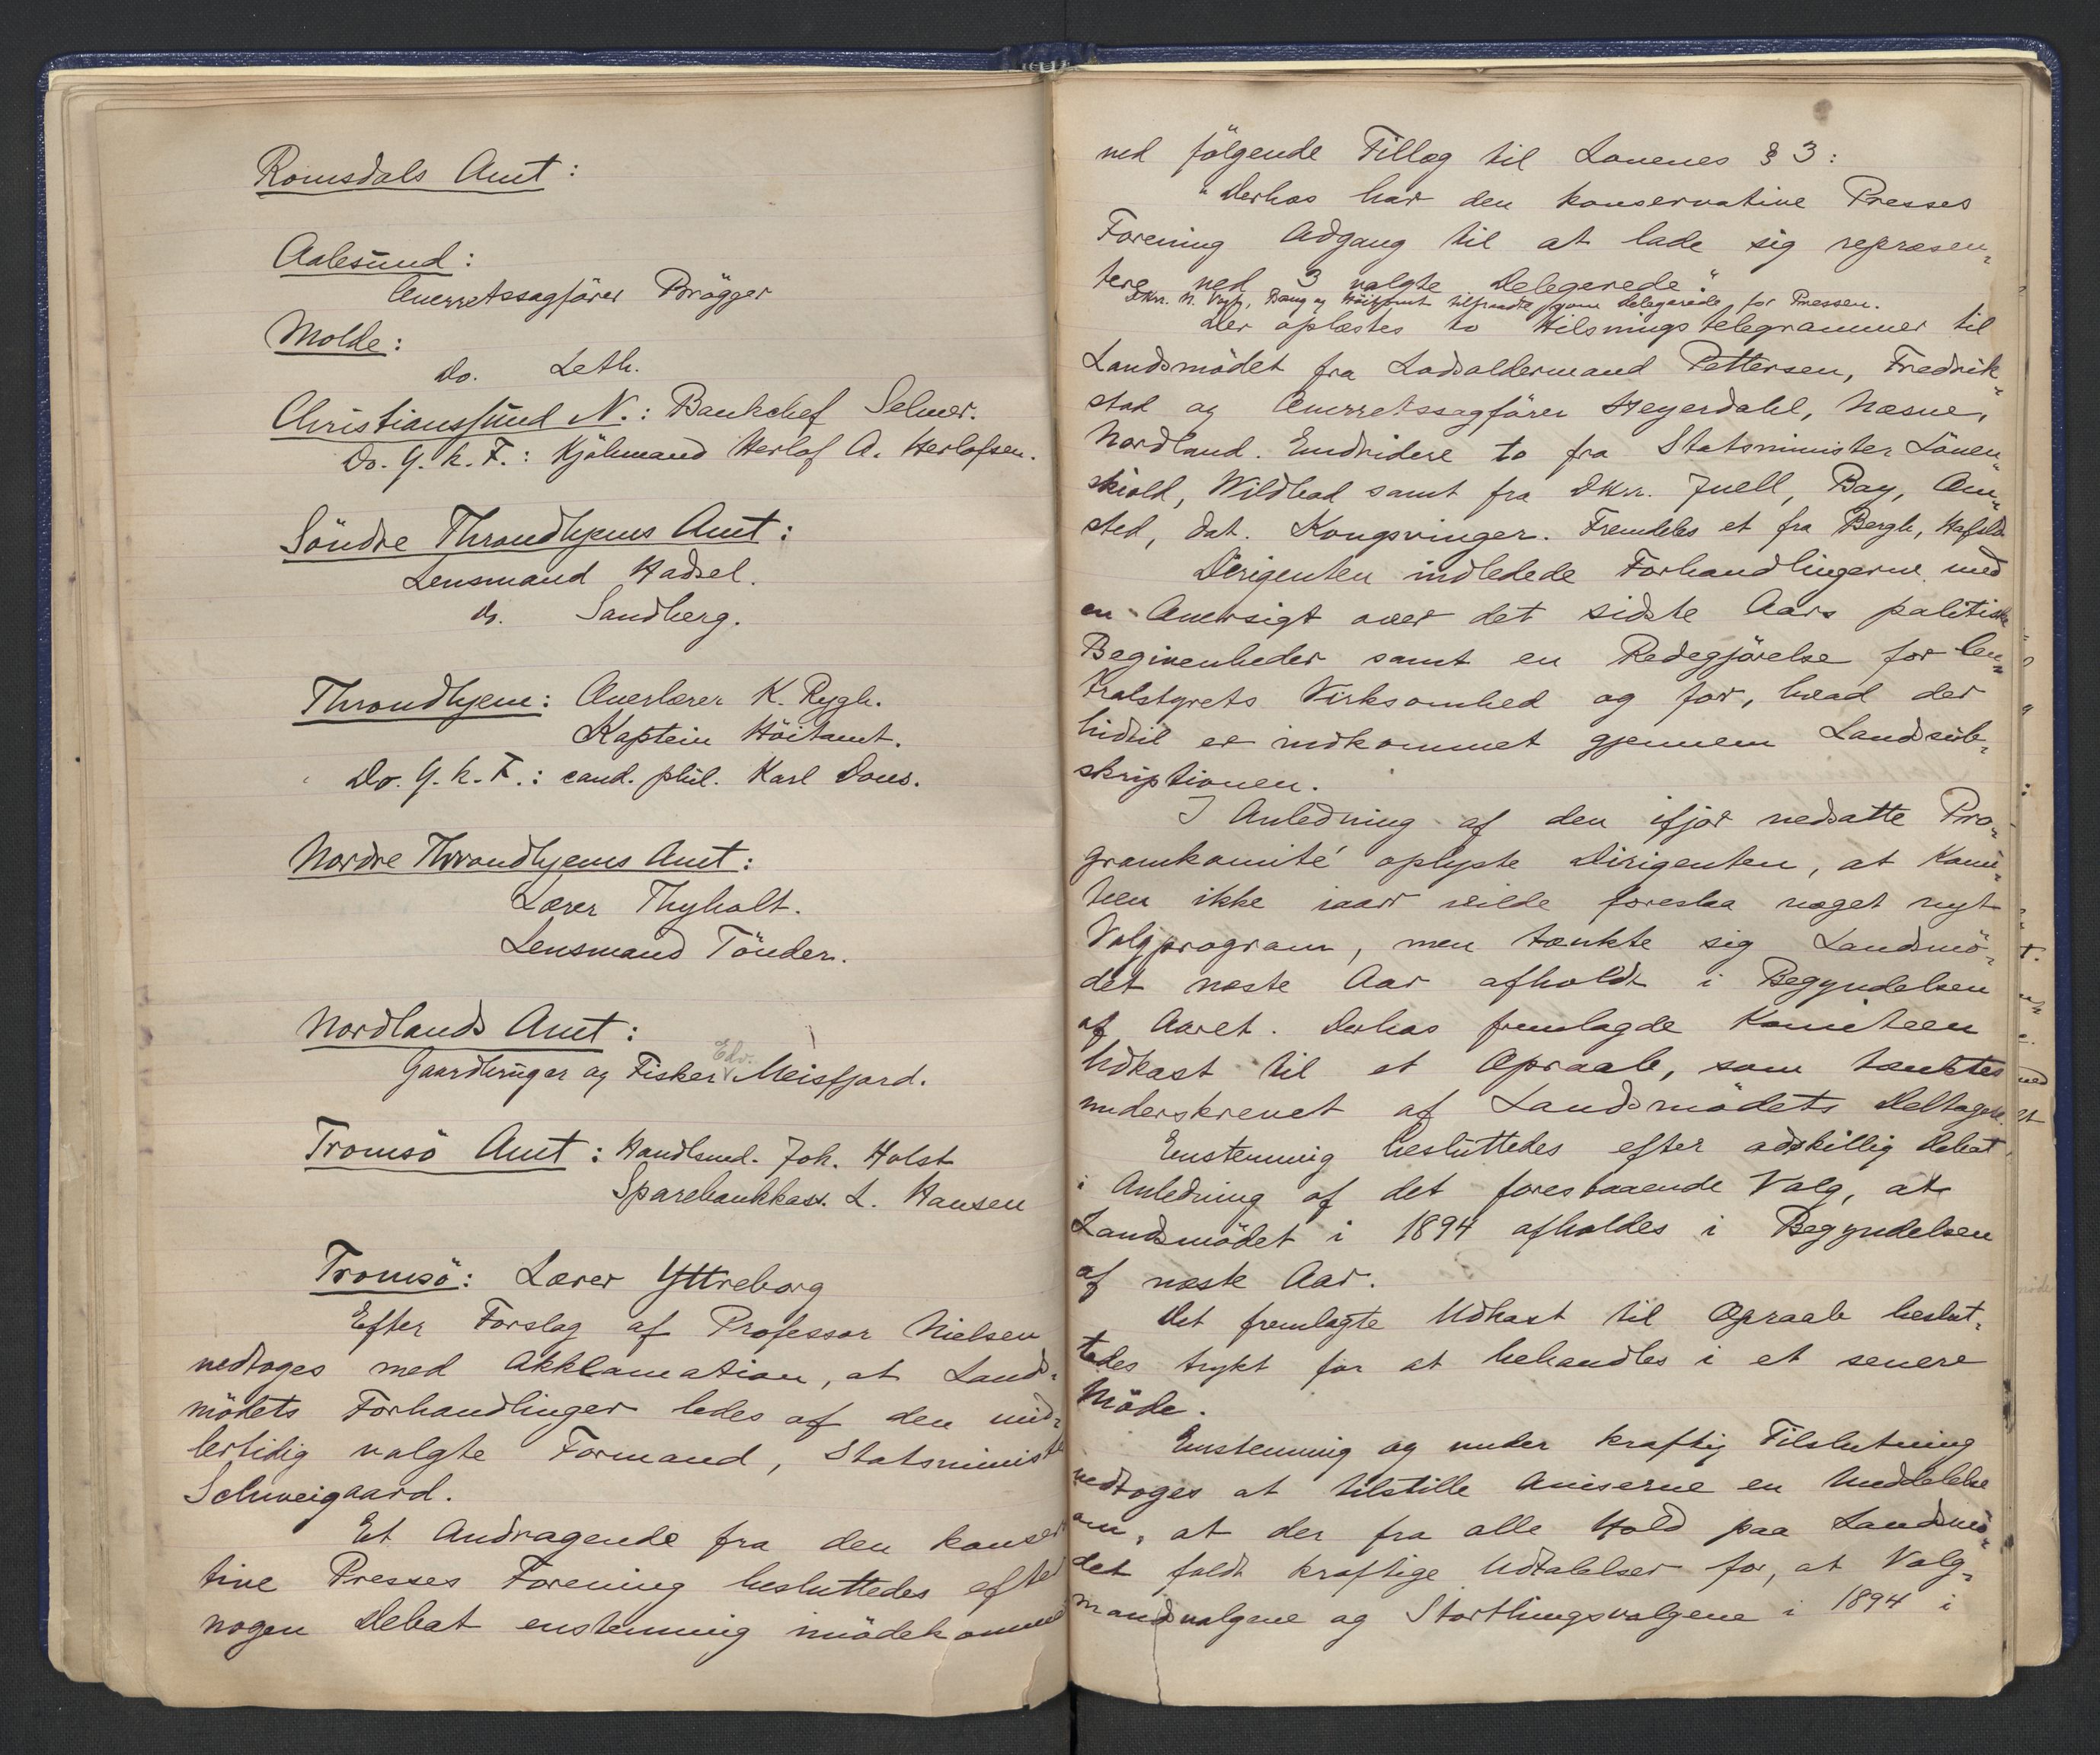 Romsdals Amt:
Aalesund:
Overretssagförer Brögger
Molde:
Do. Leth.
Christianssund N.: Bankchef Selmer.
Do. G. k. F.: Kjöbmand Herlof A. Herlofsen.
Söndre Throndhjems Amt:
Lensmand Hadsel.
do. Sandberg.
Throndhjem: Overlærer K. Rygh.
Kaptein Höitomt.
Do. G. k. F.: cand. phil. Karl Dons.
Nordre Throndhjems Amt:
Lærer Thyholt.
Lensmand Tönder.
Nordlands Amt:
Gaardbruger og Fisker Edv. Meisfjord.
Tromsö Amt: Handlsmd. Joh. Holst
Sparebankkass. L. Hansen
Tromsö: Lærer Yttreborg
Efter Forslag af Professor Nielsen
vedtoges med Akklamation, at Lands-
mödets Forhandlinger ledes af den mid-
lertidig valgte Formand, Statsminister
Schweigaard.
Et Andragende fra den konserva
tive Presses Forening besluttedes efter
nogen Debat enstemmig imödekommet
ved fölgende Tillæg til Lovenes § 3:
"Derhos har den konservative Presses
Forening Adgang til at lade sig repræsen-
tere ved 3 valgte Delegerede."
DHrr. N. Vogt, Bang og Höitomt tilstede som Delegerede for Pressen.
Der oplæstes to Hilsningstelegrammer til
Landsmödet fra Lodsoldermand Pettersen, Fredrik-
stad og Overretssagförer Heyerdahl, Næsne,
Nordland. Endvidere to fra Statsminister Löven-
skiold, Wildbad samt fra DHrr. Juell, Bay, Om-
sted, dat. Kongsvinger. Fremdeles et fra Bergh, Hafslo
Dirigenten indledede Forhandlingerne med
en Oversigt over det sidste Aars politiske
Begivenheder samt en Redegjörelse for Cen-
tralstyrets Virksomhed og for, hvad der
hidtil er indkommet gjennem Landssub-
skriptionen.
I Anledning af den ifjor nedsatte Pro-
gramkomité oplyste Dirigenten, at Komi-
teen ikke iaar vilde foreslaa noget nyt
Valgprogram, men tænkte sig Landsmö-
det næste Aar afholdt i Begyndelsen
af Aaret. Derhos fremlagde Komiteen
Udkast til et Opraab, som tænktes
underskrevet af Landsmödets Deltagere.
Enstemmig besluttedes efter adskillig Debat
i Anledning af det forestaaende Valg, at
Landsmödet i 1894 afholdes i Begyndelsen
af næste Aar.
Det fremlagte Udkast til Opraab beslut-
tedes trykt for at behandles i et senere
Möde.
Enstemmig og under kraftig Tilslutning
vedtoges at tilstille Aviserne en Meddelelse
om, at der fra alle Hold paa Landsmö-
det faldt kraftige Udtalelser for, at Valg-
mandsvalgene og Storthingsvalgene i 1894 i